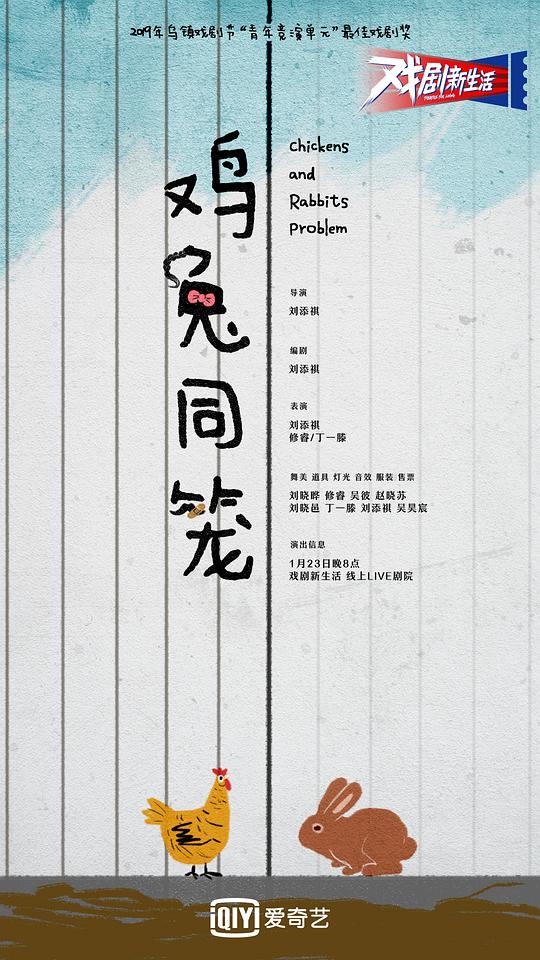 2019年乌镇戏剧节“青年竞演单元”最佳戏剧奖
戏剧新生活
鸡兔同笼
Chickens
and
Rabbits
Problem
导演
刘添祺
编剧
刘添祺
表演
刘添祺
修睿/丁一滕
舞美 道具 灯光 音效 服装 售票
刘晓晔 修睿 吴彼 赵晓苏
刘晓邑 丁一滕 刘添祺 吴昊宸
演出信息
1月23日晚8点
戏剧新生活 线上LIVE剧院
iQIYI 爱奇艺